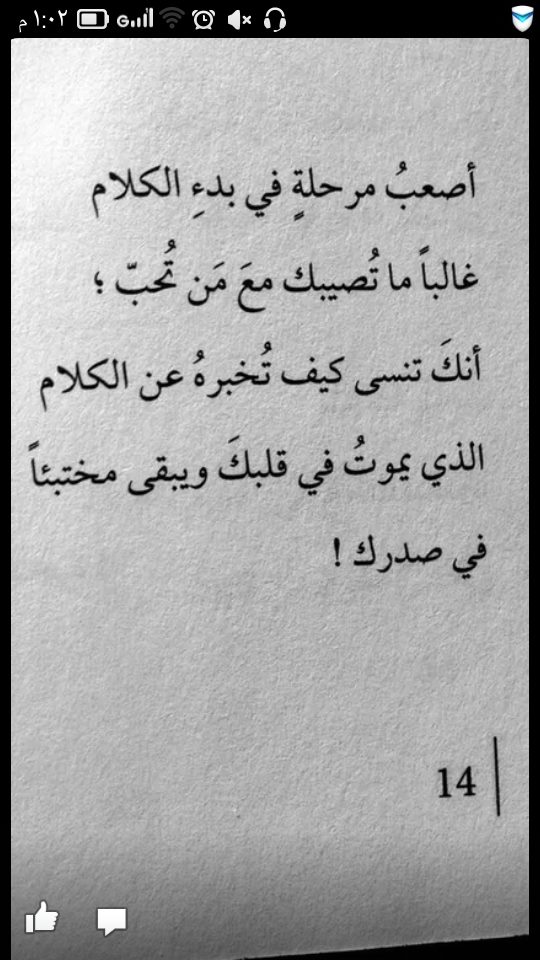 ١:٠٢ م
G
أصعبُ مرحلةٍ في بدءِ الكلام
غالباً ما تُصيبك معَ مَن تُحبّ ؛
أنكَ تنسى كيف تُخبرهُ عن الكلام
الذي يموتُ في قلبكَ ويبقى مختبئاً
في صدرك !
14